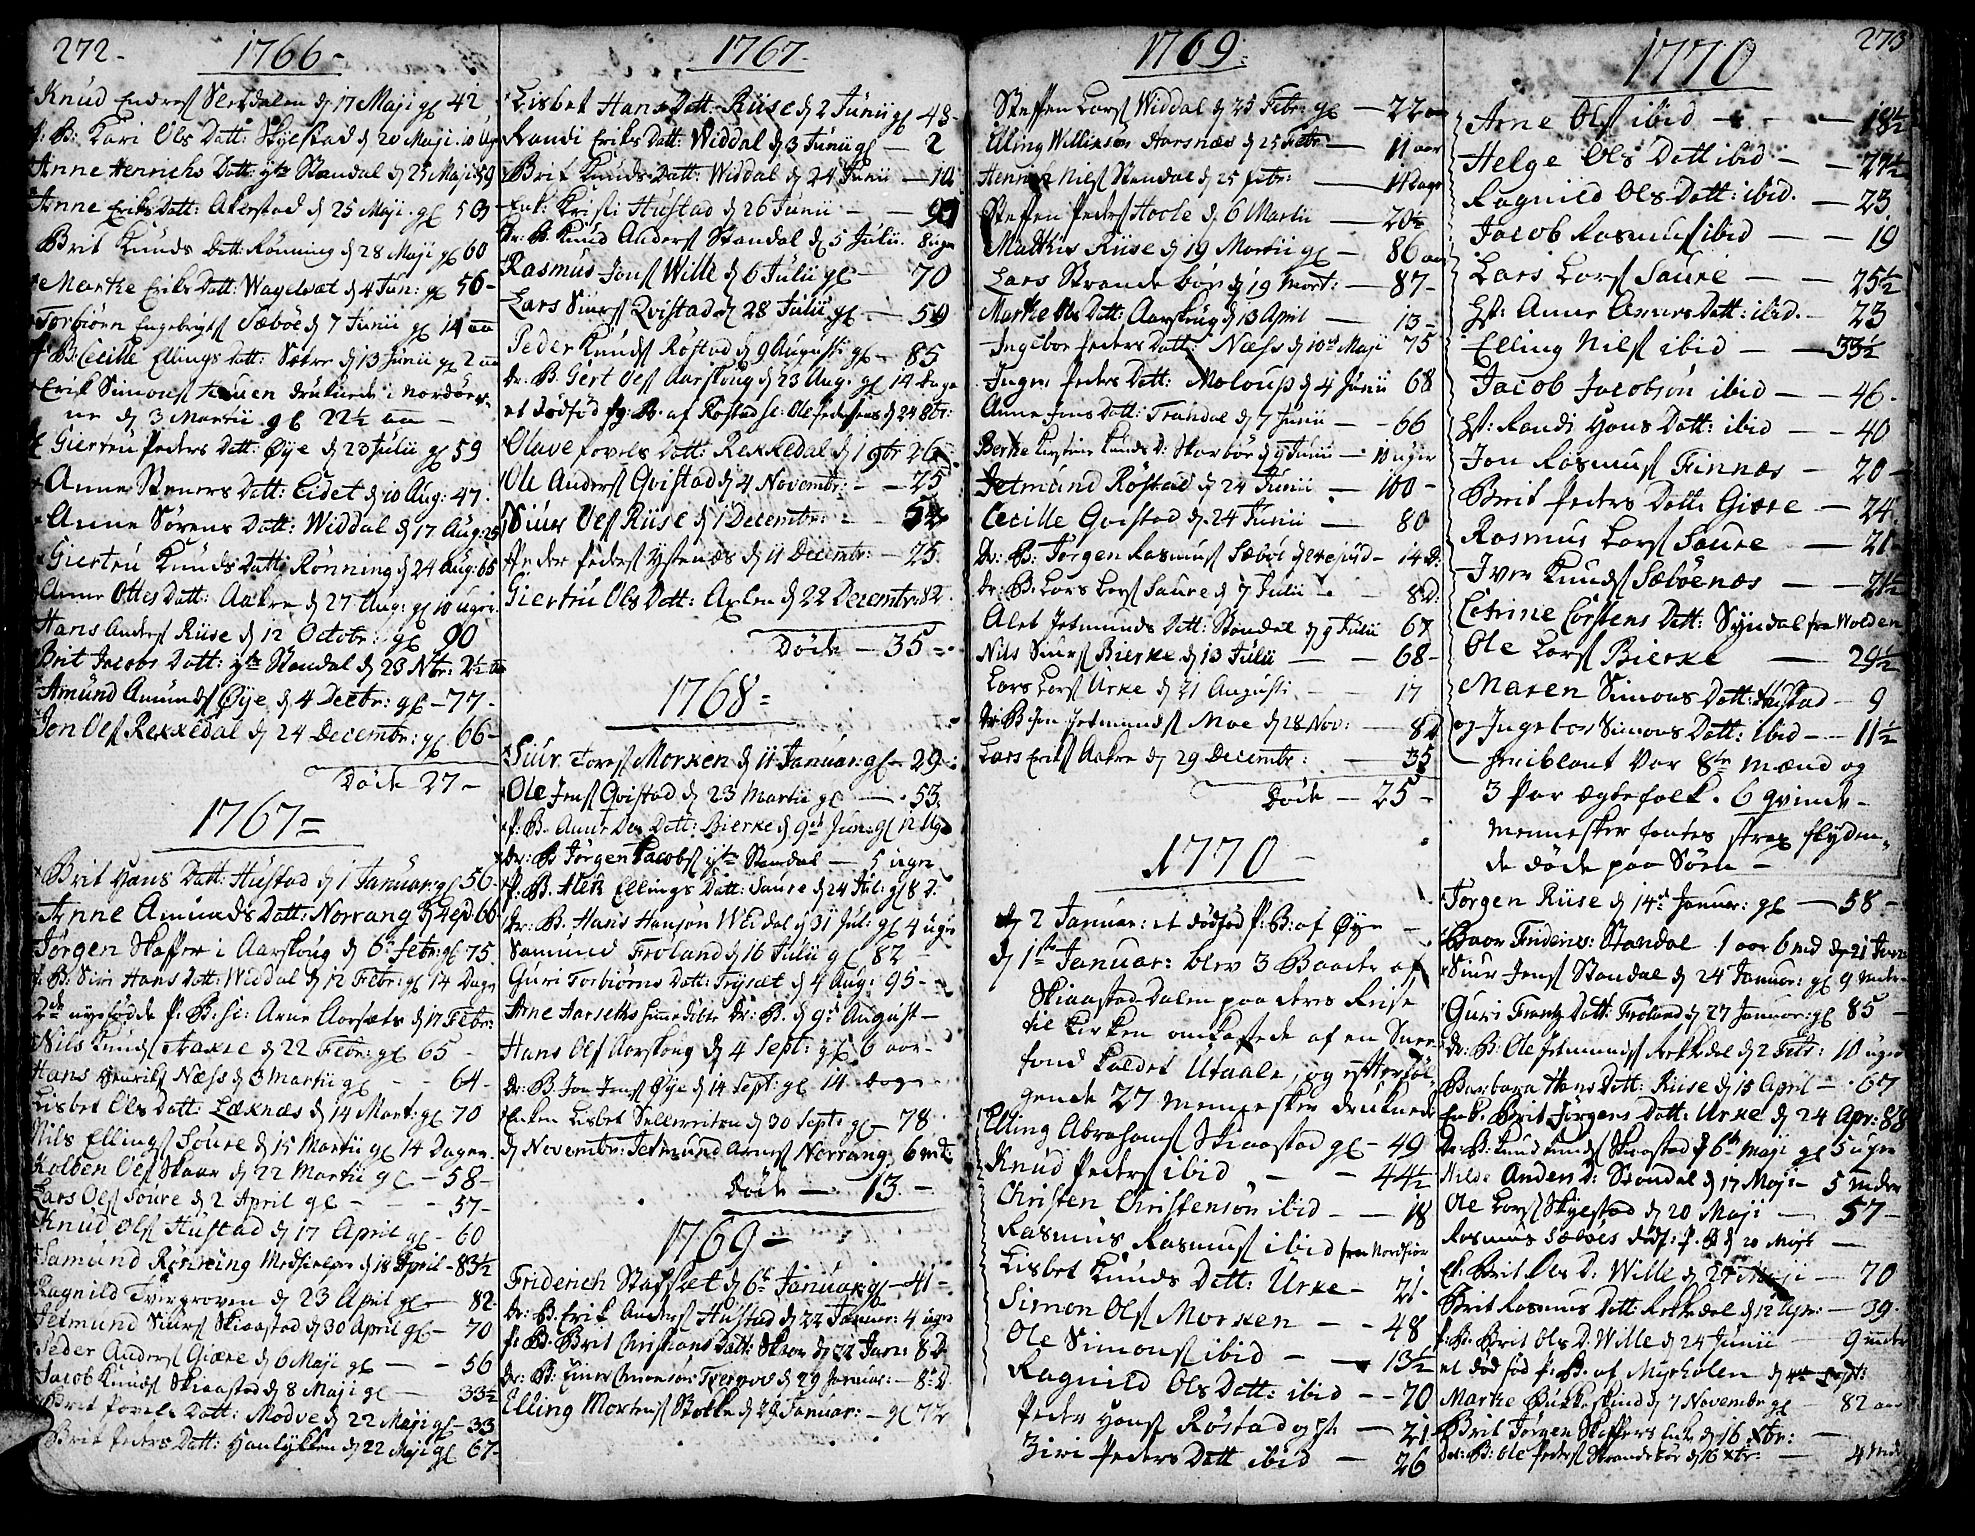 272.
1766
Knud Enders Slettdalen d 17 Maji gl 42
p: B: Kari Ols Datt: Skyestad d 20 Maji 10 Uger
Anne Henrichs Datt: yts Standal d 23 Maji 59
Anne Eriks Datt: Akerstad d 25 Maji gl 50
Brit Knuds Datt: Rønning d 28 Maji gl 60
Marthe Eriks Datt: d 4 Jun: gl 56
Torbiörn Engebrigts Sæböe d 7 Junii gl 14 aa
p: B: Cecille Ellings Datt: Sætre d 13 Junii gl 2 aa
Erik Simons druknede i Nordør-
ne d 3 Martii gl 22½ aa
Giertru Peders Datt: Øye d 23 Julii gl 59
Anne Steners Datt: Eidet d 10 Aug: 47
Anne Sørens Datt: Widdal d 17 Aug: 25
Giertru Knuds Datt: Rønning d 24 Aug: 65
Anne Ottes Datt: Aakre d 27 Aug: gl 10 uger
Hans Anders Riise d 12 Octobr: gl 90
Brit Jacobs Datt: yts Standal d 23 Nbr: 2½ aa
Amund Amunds Øye d 4 Decbr: gl 77
Jon Ols Rekkedal d 24 Decembr: gl 66
Døde 27
1767
Brit Hans Datt: Hustad d 1 Januar: gl 56
Anne Amunds Datt: Norrang d 4 ejd 66
Jørgen Skaffer i Aarskoug d 6 Febr: gl 75
p: B: Siri Hans Datt: Widdal d 12 Febr: gl 14 Dage
2de nyefødde p: B: se: Arne Aarsets d 17 Febr:
Nils Knuds Aakre d 22 Febr: gl 65
Hans Henriks Næss d 3 Martii gl 64
Lisbet Ols Datt: Læknæs d 14 Mart: gl 70
Nils Ellings Soure d 15 Martii gl 14 Dager
Kolben Ols Skaar d 22 Martii gl 58
Lars Ols Soure d 2 April gl 57
Knud Ols Hustad d 17 April gl 60
Samund Rønning Medhielper d 18 April 83½
Ragnild Tvergroven d 23 April gl 82
Jetmund Siurs Skiaastad d 30 April gl 70
Peder Anders Giære d 6 Maji gl 56
Jacob Knuds Skiaastad d 8 Maji gl 33½
Brit Povels Datt: Modve d 22 Maji gl 33
Brit Peders Datt: d 22 Maji gl 67
1767.
Lisbet Hans Datt: Riise d 2 Junii gl 48
Randi Eriks Datt: Widdal d 3 Junii gl 2
Brit Knuds Datt: Widdal d 24 Junii 10
Enk: Kristi Hustad d 26 Junii
Dr: B: Knud Anders Standal d 5 Julii 8 uger
Rasmus Jons Wille d 6 Julii gl 70
Lars Siurs Qvistad d 28 Julii gl 59
Peder Knuds Røstad d 9 Augusti gl 85
Dr: B: Giert Ols Aarskoug d 23 Aug: gl 14 Dage
et Dødfød Dr: B: af Røstad se: Ole Pedersens d 24 8br:
Olave Povels Datt: Rekkedal d 1 9br 26
Ole Anders Qvistad d 4 Novembr: 25
Siur Ols Riise d 1 Decembr: 54
Peder Peders Ystenæs d 11 Decembr: 25
Giertru Ols Datt: Axlen d 22 Decembr: 82
Døde 35
1768
Siur Tores Morken d 11 Januar: gl 29
Ole Jens Qvistad d 23 Martii gl 53
p: B: Anne Ols Datt: Bierke d 9 Jun: gl 12 Uger
Dr: B: Jørgen Jacobs yts Standal 5 uger
p: B: Alet Ellings Datt: Saure d 24 Jul: gl 8 D.
Dr: B: Hans Hansøn Widdal d 31 Jul: gl 4 uger
Samund Froland d 16 Julii gl 82
Guri Torbiørns Datt: Trysæt d 4 Aug: 95
Arne Aarseths Dr: B: d 9 August
Hans Ols Aarskoug d 4 Sept: gl 6 aar
Dr: B: Jon Jens Øye d 14 Sept: gl 14 Dage
Enken Lisbet d 30 Sept: gl 78
d Novembr: Jetmund Arnes Norrang 6 mdr
Døde 13
1769
Friderich Stafset d 6 Januar: gl 41
Dr: B: Erik Anders Hustad d 22 Januar: 4 uger
p: B: Brit Christians Datt: Skaar d 22 Jan: 8 D
Dr: B: Einer d 29 Januar: 8 D
Elling Mortens Stokke d 29 Januar: gl 72
1769:
Steffen Lars Widdal d 25 Febr: gl 22 aar
Elling Willumsøn Aarsnæs d 25 Febr: 11 aar
Henrich Niels Standal d 25 Febr: 11 Dager
Steffen Peders Hoele d 6 Martii 20½
Mathis Riise d 19 Martii gl 86 aar
Lars Strandebøe d 19 Mart: 87
Marthe Ols Datt: Aarskoug d 13 April 13
Ingebor Peders Datt: Næss d 10 Maji 75
Inger Peders Datt: Moloug d 4 Junii 68
Anne Jons Datt: Trandal d 7 Junii 66
Berthe Kirstine Knuds D: Skorbør d 9 Junii 10 uger
Jetmund Røstad d 24 Junii 100
Cecille Qvistad d 24 Junii 80
Dr: B: Jørgen Rasmus Sæböe d 24 ejusd 14 D.
Dr: B: Lars Lars Saure d 7 Julii 8 D.
Alet Jetmunds Datt: Standal d 9 Julii 67
Nils Siurs Bierke d 13 Julii 68
Lars Lars Urke d 21 Augusti 17
Dr: B: Jon Jetmunds Moe d 28 Nov: 8 D
Lars Eriks Aakre d 29 Decembr: 35
Døde 25
1770
d 2 Januar: et dødfød p: B: af Øye
d 1 Januar: blev 3 Baade af
Skiaastad-Dalen paa deres Reise
til Kirken omkastede af en Snee-
fond kaldet Utaale, og efterføl-
gende 27 Mennesker druknede
Elling Abrahams Skiaastad gl 49
Knud Peders ibid 44½
Christen Christensøn ibid 18
Rasmus Rasmus ibid fra Nordfior
Lisbet Knuds Datt: Urke 21
Simon Ols Morken 48
Ole Simons ibid 13½
Ragnild Ols Datt: ibid 70
Peder Hans Røstad 21
Ziri Peders Datt ibid 26
273
1770
Arne Ols ibid 18½
Helge Ols Datt ibid 27½
Ragnild Ols Datt: ibid. 23
Jacob Rasmus ibid 19
Lars Lars Saure 25½
Hst: Anne Arners Datt: ibid. 23
Elling Nils ibid 33½
Jacob Jacobsøn ibid 46
Hst: Randi Hans Datt: ibid 40
Jon Rasmus Finnæs 20
Brit Peders Datt: Giære 24
Rasmus Lars Saure 21
Iver Knuds Sæbøenæs 21½
Catrine Corstens Datt: Syndal fra Wolden
Ole Lars Bierke 29½
Maren Simons Datt: Hustad 9
og Ingebor Simons Datt: ibid 11½
hvoriblant var 8te Mænd og
3 Par Ægtefolk. 6 qvinde-
mennesker fantes strax flyden-
de døde paa Søen
Jørgen Riise d 14 Januar: gl 58
Baar Friderics: Standal 1 aar 6 md d 21 Janv
Siur Jens Standal d 24 Januar: gl 9 Mdr
Guri Frantz Datt: Froland d 27 Januar: gl 85
Dr: B: Ole Jetmunds Rekkedal d 2 Febr: 10 uger
Barbara Hans Datt: Riise d 15 April 67
Enk: Brit Jørgens Datt: Urke d 24 Apr: 88
Dr: B: Knud Knuds Skiaastad d 6 Maji gl 5 uger
Hilde Anders D: Standal d 17 Maji 5 mdr
Ole Lars Skyestad d 20 Maji 57
Rasmus Sæböes dødf: p: B d 20 Maji
E: Brit Ols D: Wille d 27 Maji 70
Brit Rasmus Datt: Rekkedal d 12 39
p: B: Brit Ols D: Wille d 24 Junii 9 mdr
et død fød p: B: af Myrholen d 4 Sept:
Marthe Bukkeskind d 7 Novembr gl 82 aar
Brit Jørgen Skaffers Enke d 16 Xbr:
Dr: B: Ole Peders Strandebør d 16 Xbr: 4 Mdr